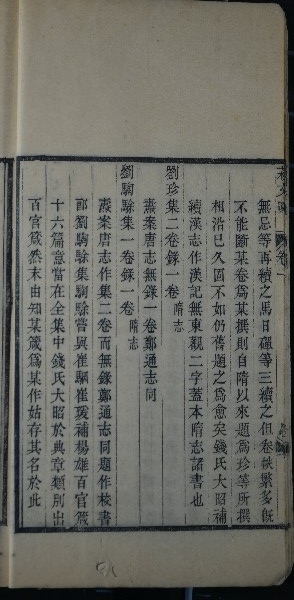 無忌等再續之馬日磾等三續之但卷帙繁多旣
不能斷某卷爲某撰則自隋以來題爲珍等所撰
相沿已久固不如仍舊題之爲愈矣錢氏大昭補
續漢志作漢記無東觀二字蓋本隋志諸書也
劉珍集二卷錄一卷 隋志
燾案唐志無錄一卷鄭通志同
劉騊駼集一卷錄一卷 隋志
燾案唐志作集二卷而無錄鄭通志同題作校書
郎劉騊駼集騊駼嘗與崔駰崔瑗補楊雄百官箴
十六篇意當在全集中錢氏大昭於典章類別出
百官箴然末由知某箴爲某作姑存其名於此